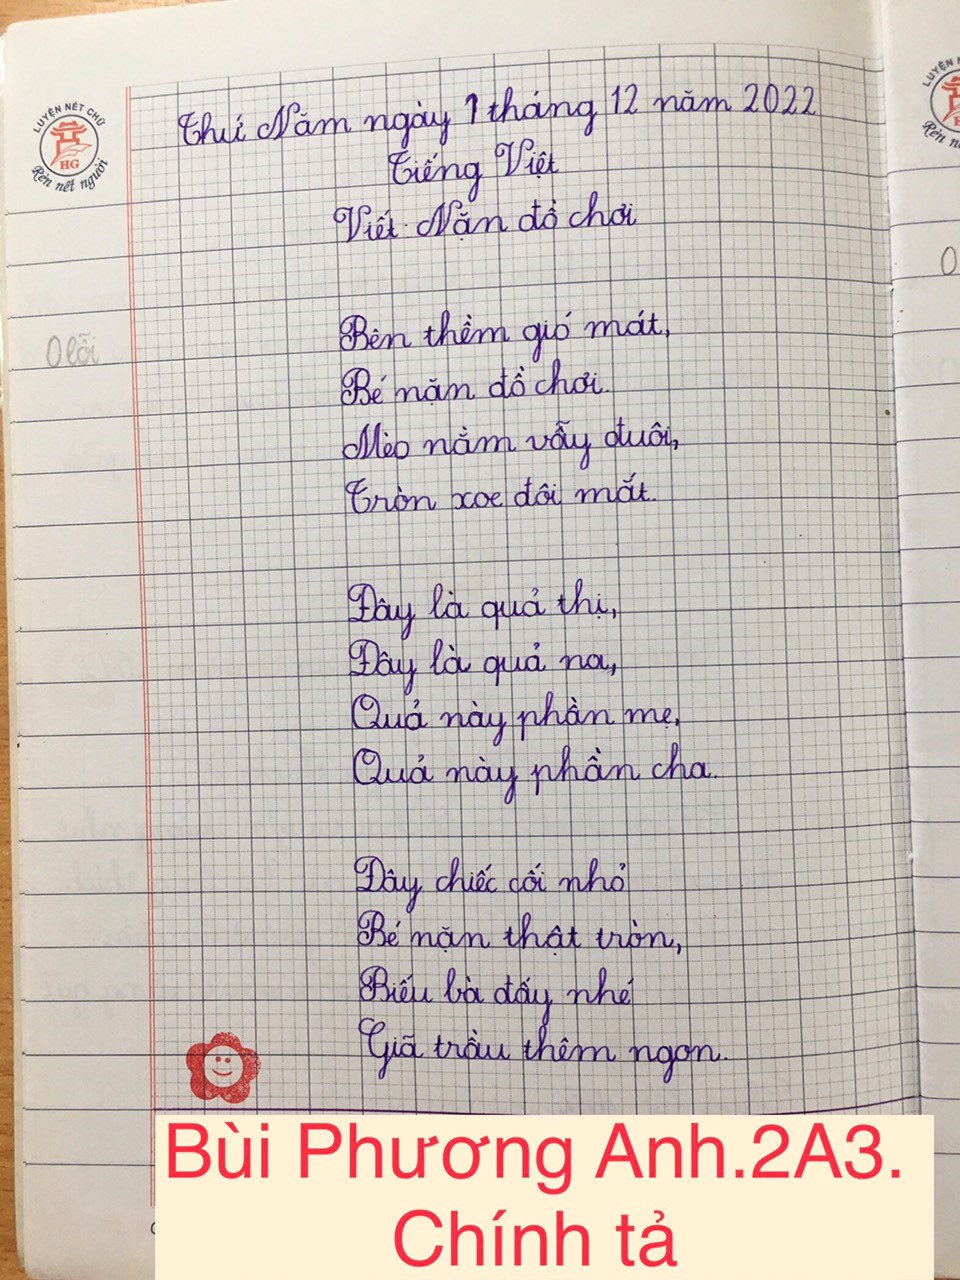 LUYỆN NẾT CHỮ
HG
Rèn nết người
Thứ Năm ngày 1 tháng 12 năm 2022
Tiếng Việt
Viết: Nặn đồ chơi
0 lỗi
Bên thềm gió mát,
Bé nặn đồ chơi.
Mèo nằm vẫy đuôi,
Tròn xoe đôi mắt.
Đây là quả thị,
Đây là quả na,
Quả này phần mẹ,
Quả này phần cha.
Đây chiếc cối nhỏ
Bé nặn thật tròn,
Biếu bà đấy nhé
Giã trầu thêm ngon.
Bùi Phương Anh.2A3.
Chính tả